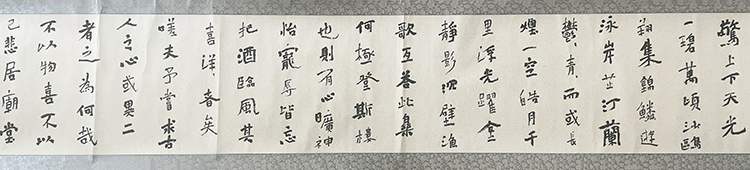 驚上下天光
一碧萬頃沙鷗
翔集錦鱗遊
泳岸芷汀蘭
鬱〻青〻而或長
煙一空皓月千
里浮光躍金
靜影沉璧漁
歌互答此樂
何極登斯樓
也則有心曠神
怡寵辱皆忘
把酒臨風其
喜洋〻者矣
嗟夫予嘗求古
人之心或異二
者之為何哉
不以物喜不以
己悲居廟堂